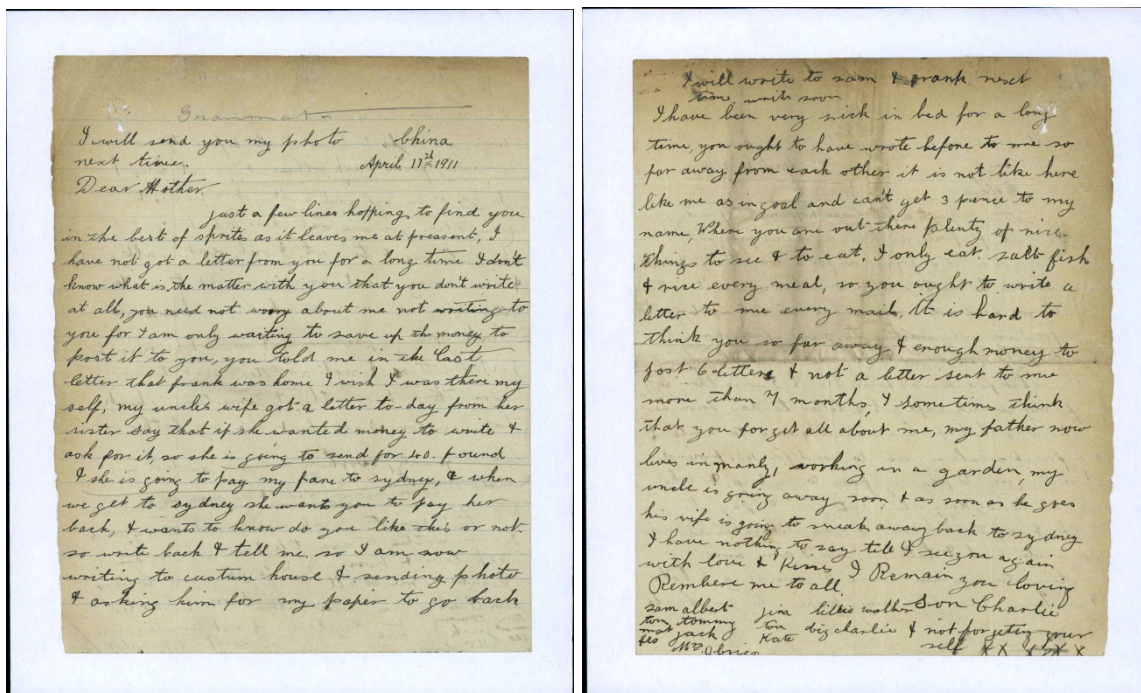 Grammat
I will send you my photo China
next time. April 11th 1911
Dear Mother.
just a few lines hopping to find you
in the best of sprites as it leaves me at preasent, I
have not got a letter from you for a long time I don't
know what is the matter with you that you don't write
at all, you need not worry about me not writing to
you for I am only waiting to save up the money to
post it to you, you told me in the last
letter that frank was home I wish I was there my
self, my uncles wife got a letter to-day from her
sister say that if she wanted money to write &
ask for it, so she is going to send for 40. pound
& she is going to pay my fare to sydney, & when
we get to sydney she wants you to pay her
back, & wants to know do you like this or not.
so write back & tell me, so I am now
writing to custum house & sending photo
& asking him for my paper to go back
I will write to sam & frank next
time, write soon
I have been very sick in bed for a long
time, you ought to have wrote before to me so
far away from each other it is not like here
like me as in goal and can't get 3 pence to my
name, Where you are out there plenty of nice
things to see & to eat. I only eat salt fish
& rice every meal, so you ought to write a
letter to me every mail, It is hard to
think you so far away & enough money to
post 6 letters & not a letter sent to me
more than 7 months, I sometimes think
that you forget all about me, my father now
lives in manly, working in a garden, my
uncle is going away soon & as soon as he goes
his wife is going to sneak away back to sydney
I have nothing to say till I see you again
with love & Kisses I Remain you loving
Rembere me to all. Son Charlie
sam albert jina lillie walker
ton tommy ton big charlie & not forgeting your
mat jack Kate self X X X X X
flo Mrs Obrien